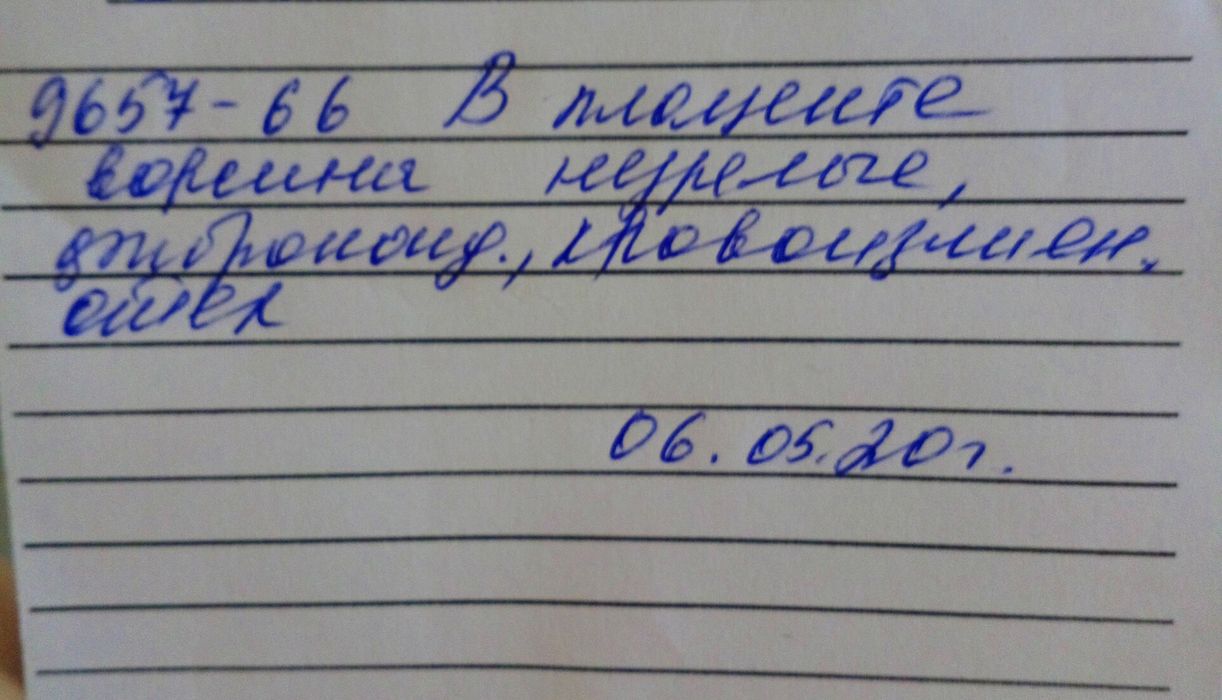 9657-66 В плаценте
ворсины незрелые,
фиброноид., кровоизлиян.
отек
06.05.20г.